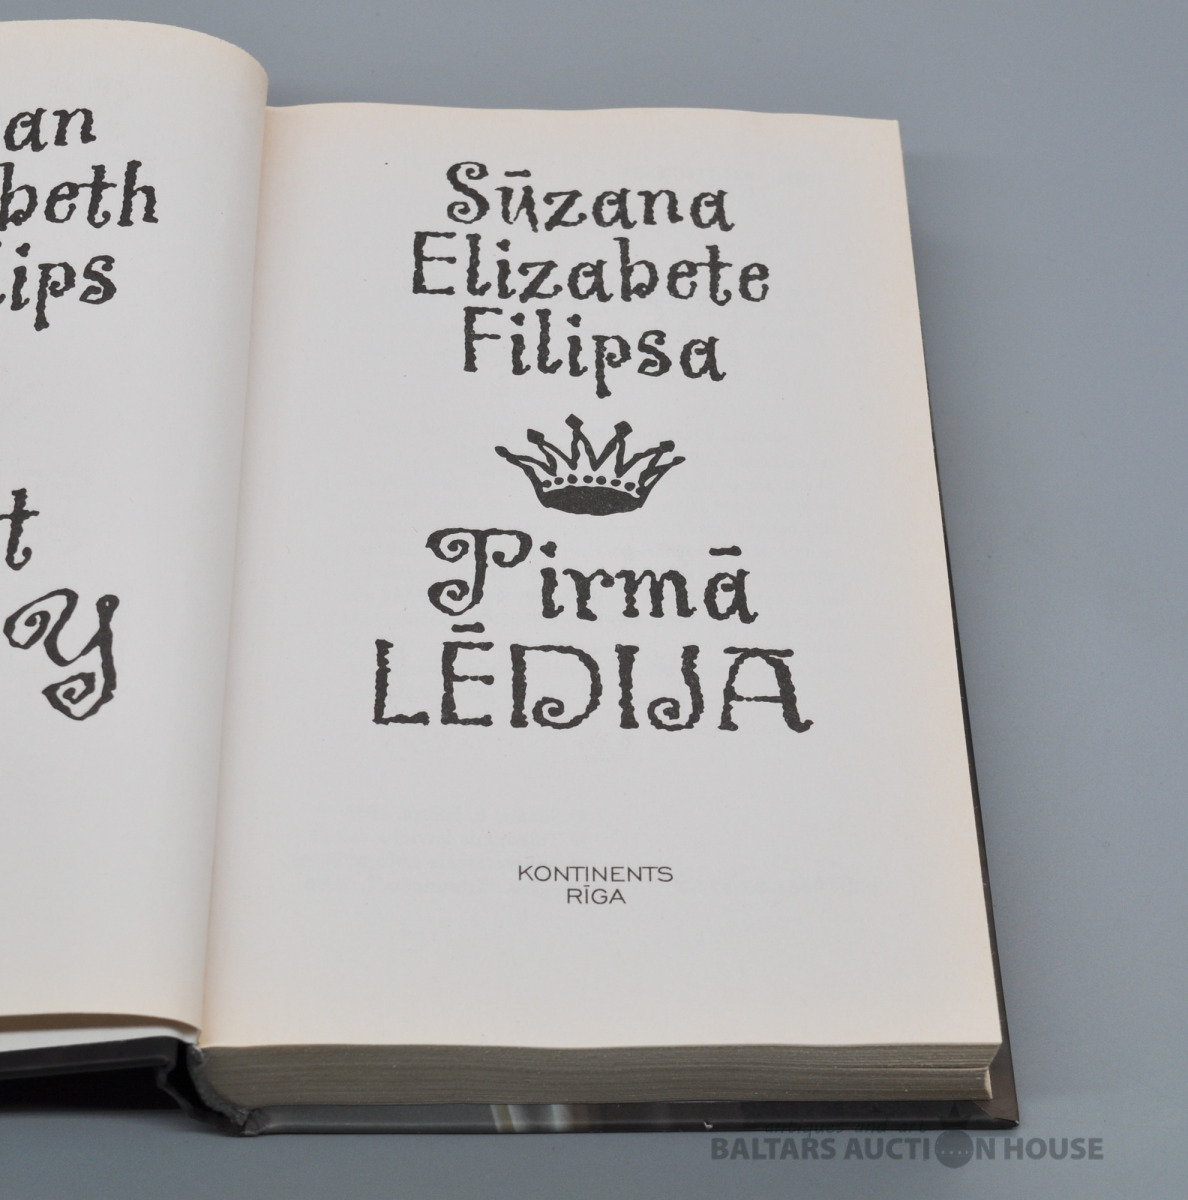 an
beth
lips
t
y
Sūzana
Elizabete
Filipsa
Pirmā
LĒDIJA
KONTINENTS
RĪGA
antiques and art
BALTARS AUCTION HOUSE